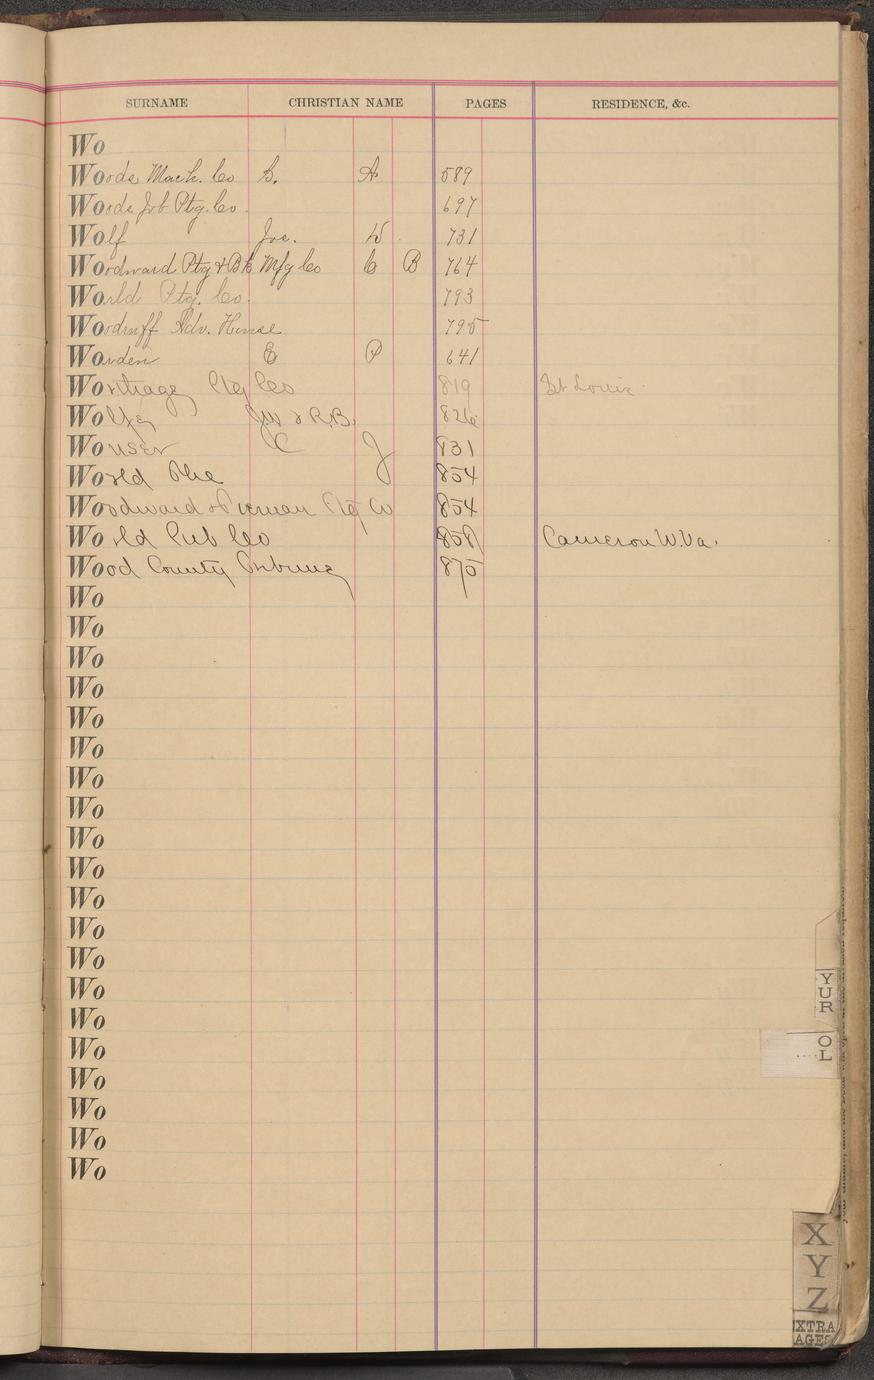 SURNAME CHRISTIAN NAME PAGES RESIDENCE, &c.
Wo
Woods Mach. Co S. A. 589
Woods Job Ptg. Co. 697
Wolf Jos. W. 731
Woodward Ptg & Bk Mfg Co C B 764
World Ptg. Co. 793
Woodruff Adv. House 795
Worden E P 641
Ptg Co 819 St Louis
Wolfe JW & R.B. 826
Wouser C J 831
World The 854
Woodward & Tiernan Ptg Co 854
World Pub Co 858 Cameron W.Va.
Wood County 875
Wo
Wo
Wo
Wo
Wo
Wo
Wo
Wo
Wo
Wo
Wo
Wo
Wo
Wo
Wo
Wo
Wo
Wo
Wo
Wo
YUR
OL
X
Y
Z
EXTRA
AGES